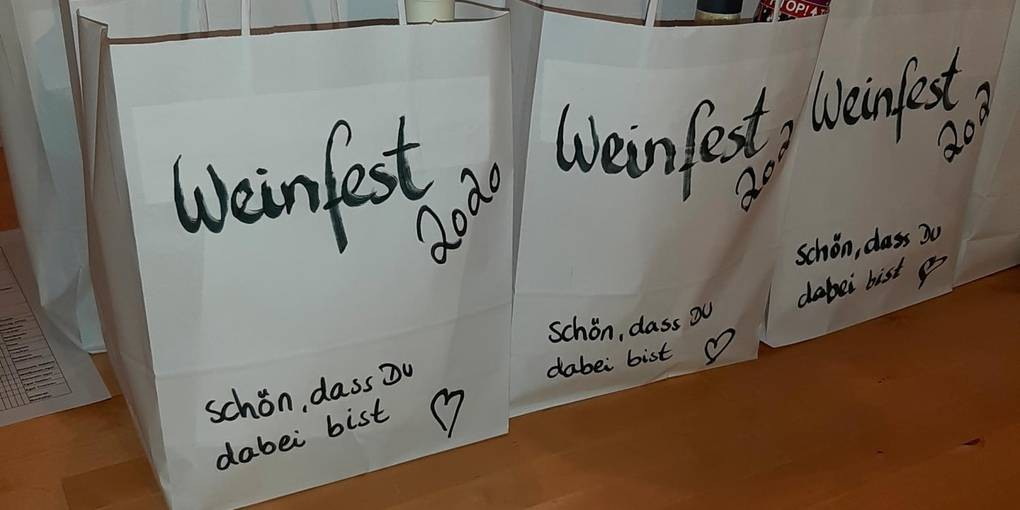 Weinfest
2020
Schön, dass Du
dabei bist
Weinfest
Schön, dass DU
dabei bist
Weinfest
Schön, dass Du
dabei bist